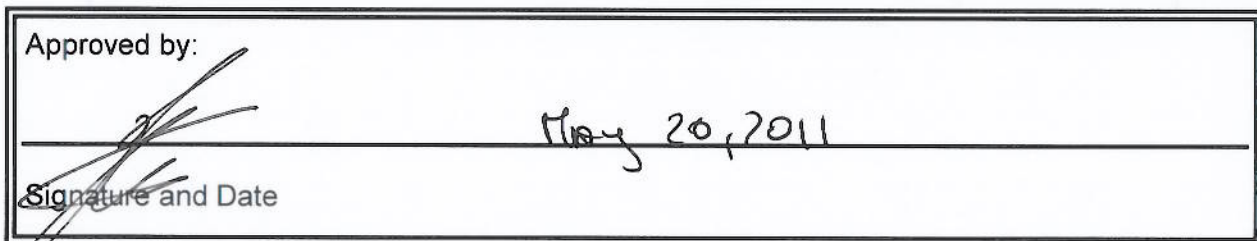 Approved by:
May 20, 2011
Signature and Date